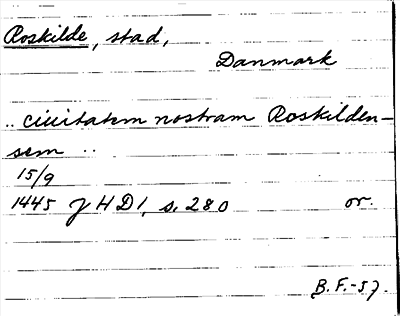 Roskilde, stad,
Danmark
.. ciuitatem nostram Roskilden-
sem ..
15/9
1445 J H D 1, s. 280 or.
B. F. -57.